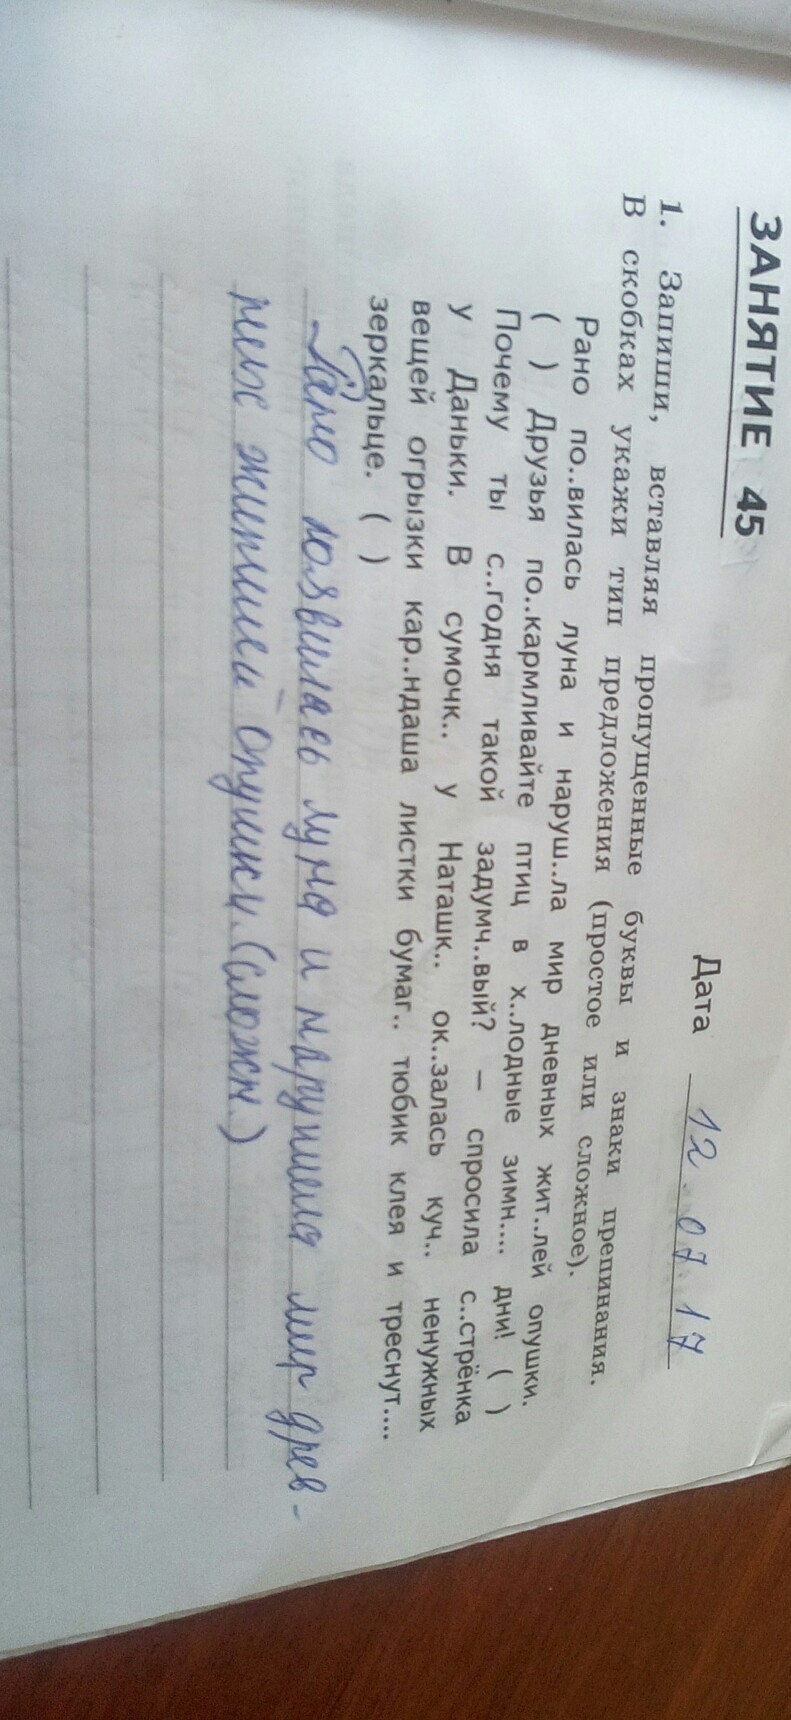 ЗАНЯТИЕ 45
Дата 12.07.17
1. Запиши, вставляя пропущенные буквы и знаки препинания.
В скобках укажи тип предложения (простое или сложное).
Рано по..вилась луна и наруш..ла мир дневных жит..лей опушки.
( ) Друзья по..кармливайте птиц в х..лодные зимн.... дни! ( )
Почему ты с..годня такой задумч..вый? — спросила с..стрёнка
у Даньки. В сумочк.. у Наташк.. ок..залась куч.. ненужных
вещей огрызки кар..ндаша листки бумаг.. тюбик клея и треснут....
зеркальце. ( )
Рано появилась луна и нарушила мир днев-
ных жителей опушки. (сложн.)